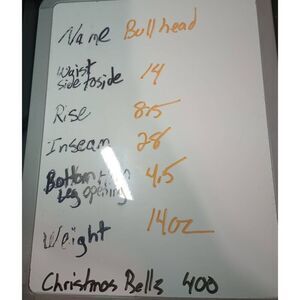 Name Bullhead
Waist side to side 14
Rise 8.5
Inseam 28
Bottom leg opening 4.5
Weight 14oz
Christmas Bells 400